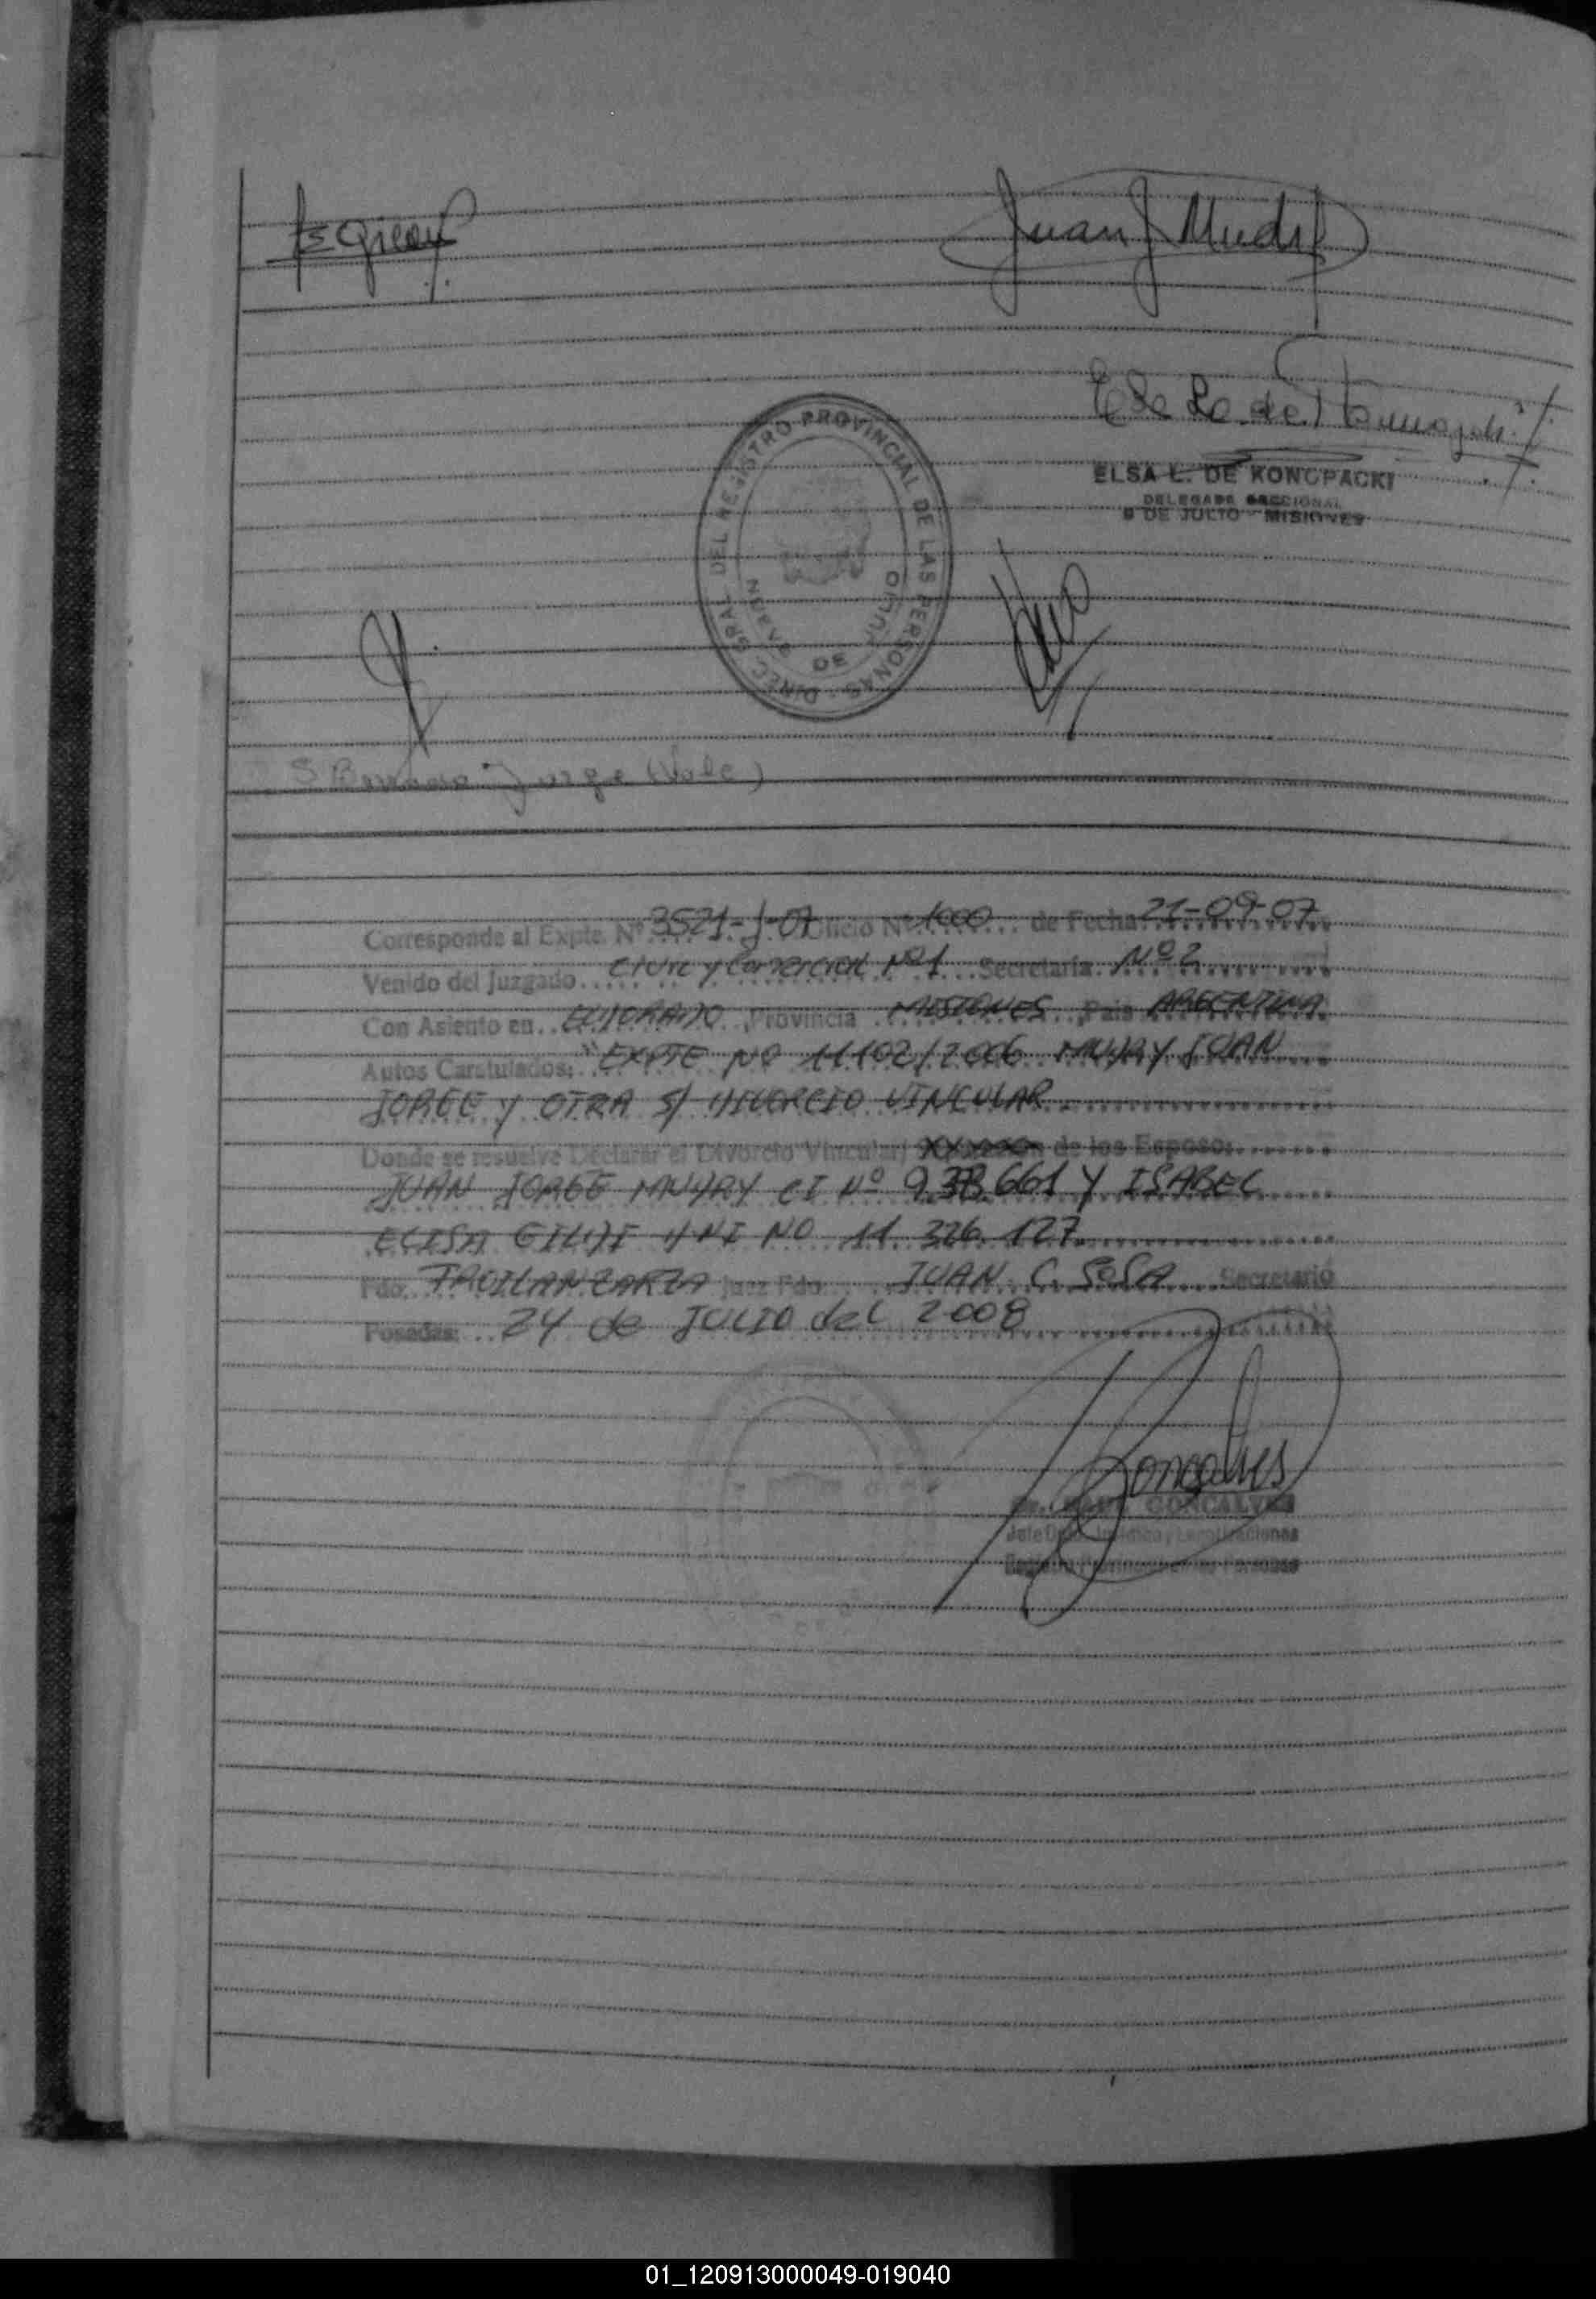 Juan J Mudry
ELSA L. DE KONOPACKI
DELEGADA SECCIONAL
9 DE JULIO - MISIONES
DIREC. GRAL. DEL REGISTRO PROVINCIAL DE LAS PERSONAS
9 DE JULIO
Jorge (Vale)
Corresponde al Expte. Nº 3521-J-07 Oficio Nº 1000 de Fecha 21-09-07
Venido del Juzgado Civil y Comercial Nº 1 Secretaría Nº 2
Con Asiento en ELDORADO Provincia MISIONES País ARGENTINA
Autos Caratulados: "EXPTE NO 11102/2006 MUDRY JUAN
JORGE y OTRA S/ DIVORCIO VINCULAR
Donde se resuelve Declarar el Divorcio Vincular de los Esposo:
JUAN JORGE MUDRY CI Nº 938.661 Y ISABEL
ELISA DNI NO 11.326.127
Fdo. Juez Fdo. JUAN C. SOSA Secretario
Posadas: 24 de JULIO del 2008
Goncalves
GONCALVES
01_120913000049-019040